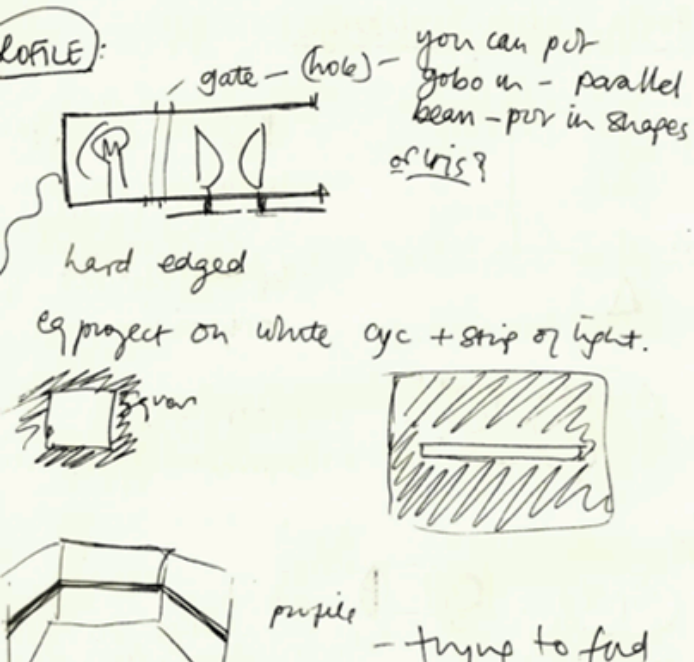 ROFILE:
gate - (hole) - you can put
gobo in - parallel
beam - put in shapes
or iris?
hard edged
eg project on white cyc + strip of light.
square
profile
- trying to find